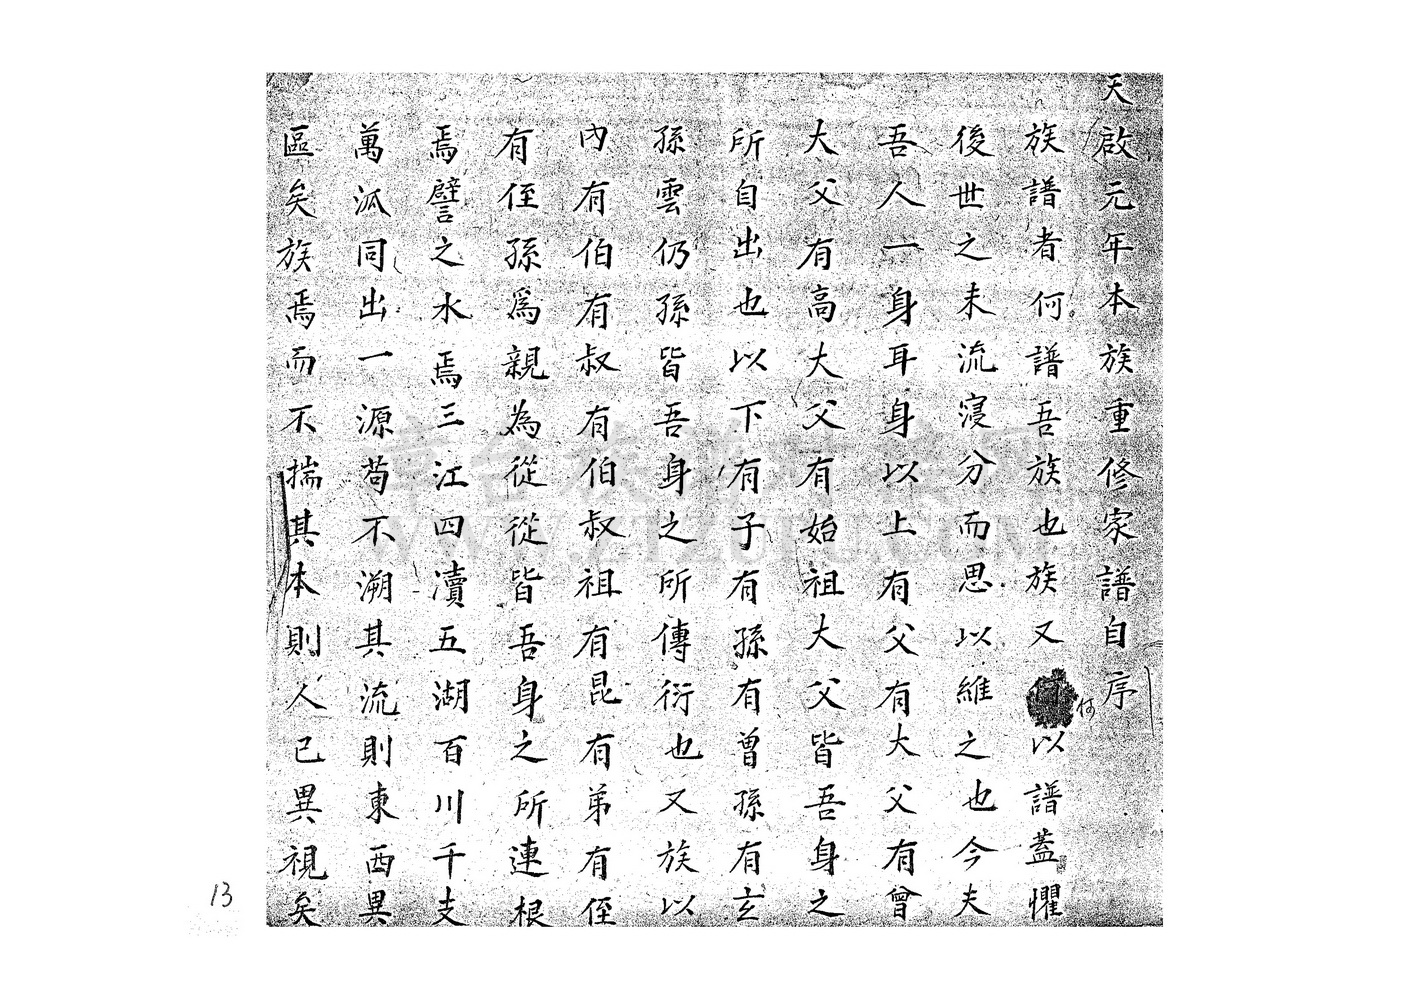 天啟元年本族重修家譜自序
族譜者何譜吾族也族又何以譜蓋懼
後世之未流寖分而思以維之也今夫
吾人一身耳身以上有父有大父有曾
大父有高大父有始祖大父皆吾身之
所自出也以下有子有孫有曽孫有玄
孫雲仍孫皆吾身之所傳衍也又族以
內有伯有叔有伯叔祖有昆有弟有侄
有侄孫爲親為從從皆吾身之所連根
焉譬之水焉三江四瀆五湖百川千支
萬派同出一源苟不溯其流則東西異
區矣族焉而不揣其本則人己異視矣
13
WWW.ZTZUPU.COM